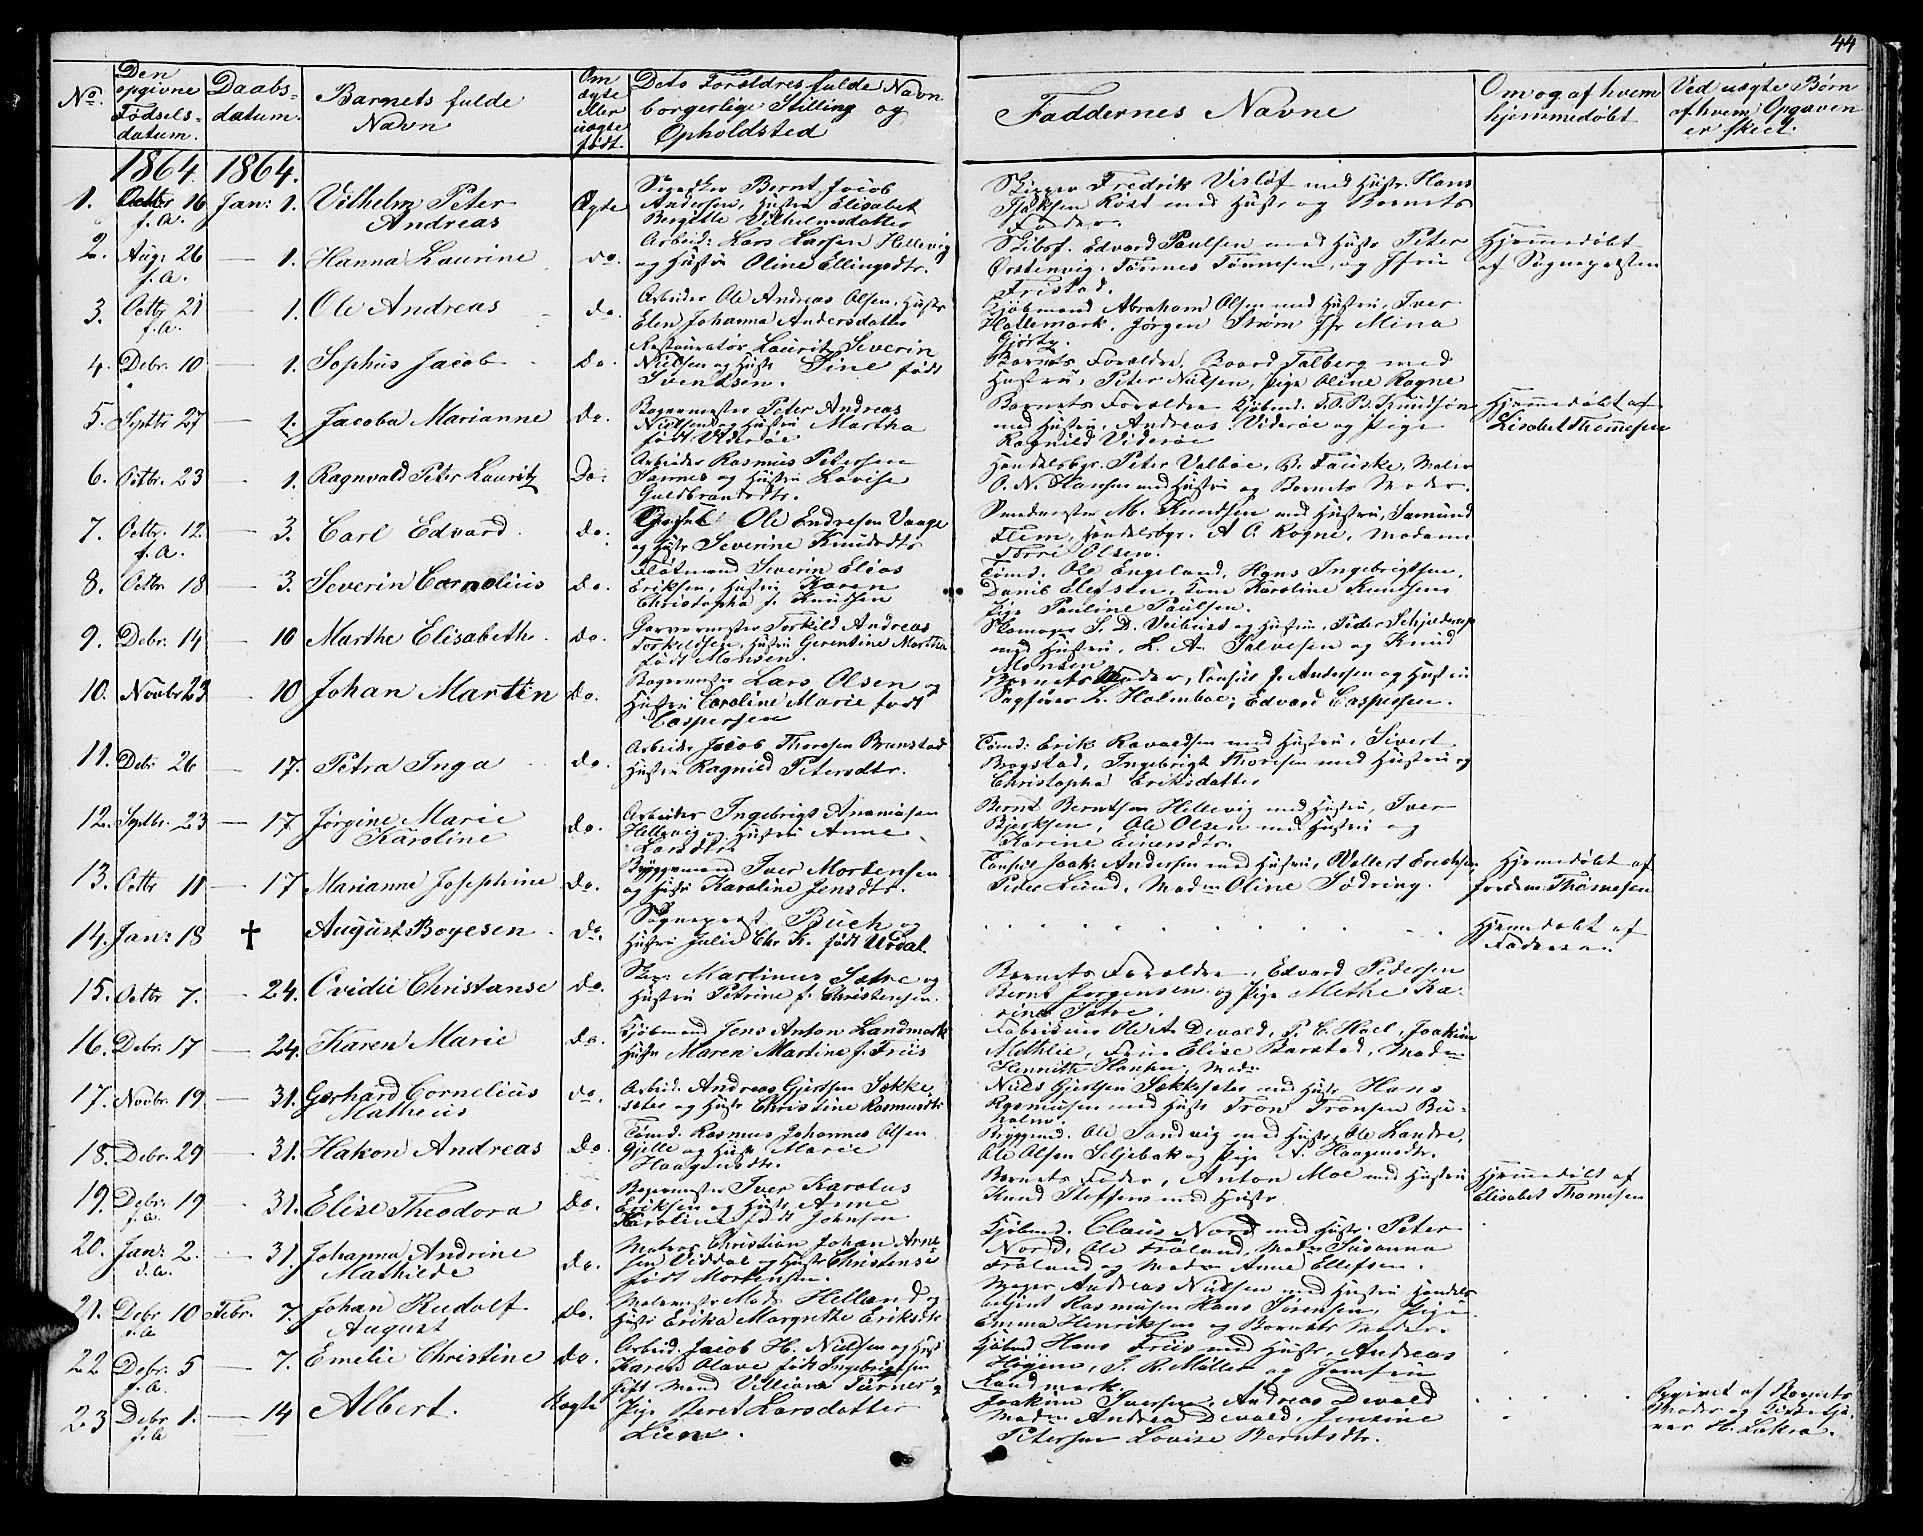 44
No.
Den opgivne Fødsels-datum.
Daabs-datum.
Barnets fulde Navn
Om ægte eller uægte født.
Dets Forældres fulde Navn borgerlige Stilling og Opholdsted
Faddernes Navne
Om og af hvem hjemmedøbt
Ved uægte Børn af hvem Opgaven er skeet.
1864 1864.
1. Octbr 16 f.a. Jan: 1. Vilhelm Peter Andreas Ægte Bernt Jacob Andersen, Hustru Elisabet Bergitte Vilhelmsdatter
Skipper Fredrik Visløf med Hustr. Hans Isaksen Røst med Hustr og Barnets Fader.
2. Aug: 26 f.a. — 1. Hanna Laurine do. Arbeid: Lars Larsen Hellevig og Hustru Oline Ellingsdtr.
Skibsf. Edvard Paulsen med Hustr Peter Ørstenvig, Tønnes Tønnesen, og Jfru Fristad.
Hjemmedøbt af Sognepresten
3. Octbr 21 f.a. — 1. Ole Andreas do. Arbeider Ole Andreas Olsen, Hustr Elen Johanna Andersdatter
Kjøbmand Abraham Olsen med Hustru, Iver Hallemark, Jørgen Strøm Jfr Mina
4. Debr. 10 — 1. Sophus Jacob Do. Restauratør Lauritz Severin Nielsen og Hustr Sine født Svendsen.
Barnets Forældre, Baard Talberg med Hustru, Peter Nielsen, Pige Oline Rogne
5. Septbr 27 — 1. Jacoba Marianne do. Bagermester Peter Andreas Nielsen og Hustru Martha født Viderøe
Barnets Forældre Kjøbmd. F.O.B. Knudsøn med Hustru, Andreas Viderøe og Pige Ragnild Viderøe
Hjemmedøbt af Lisabet Thommesen
6. Octbr. 23 — 1. Ragnvald Peter Lauritz Do. Arbeider Rasmus Petersen Sannes og Hustru Lovise Guldbrandsdtr.
Handelsbgr. Peter Valboe, B. Fauske, Maler O. N. Hansen med Hustru og Barnets Moder.
7. Octbr. 12 f.a. — 3. Carl Edvard do. Ole Endresen Vaage og Hustr Severine Knudsdtr
M. Knudsen med Hustru, Samund Flem, Handelsbgr. A O. Rogne, Madame Olsen.
8. Octbr. 18 — 3. Severin Cornelius do. Severin Elias Eriksen, Hustru Karen Christopha f. Knudsen
Tømd. Ole Engeland, Hans Ingebrigtsen, Daniel Elefsen, Kone Karoline Knudsen Pige Pauline Paulsen.
9. Debr. 14 — 10 Marthe Elisabeth do. Garvermester Torkild Andreas Torkildsen, Hustru Gerentine Martha født Monsen.
Skomager S. D. Veibust og Hustru, Peder Schjelderup med Hustru, L. A. Salvesen og Knud Monsen
10. Novbr 23 — 10 Johan Martin do. Bagermester Lars Olsen og Hustru Caroline Marie født Caspersen
Barnets Moder, Consul J. Andersen og Hustru Sagfører L. Holmboe, Edvard Caspersen.
11. Debr 26 — 17. Petra Inga do. Arbeider Jacob Thoresen Brunstad Hustru Ragnild Petersdtr.
Tømd: Erik Ravaldsen med Hustru, Sivert Brogstad, Ingebrigt Thoresen med Hustru og Christopha Eriksdatter
12. Septbr. 23 — 17 Jørgine Marie Karoline do. Arbeider Ingebrigt Ananiasen Hellevig og Hustru Anne Larsdtr
Bernt Berntsen Hellevig med Hustru, Iver Bjerksen, Ole Olsen med Hustru og Karine Einersdtr.
13. Octbr 11 — 17 Marianne Josephine do. Byggemand Iver Mortensen og Hustr Karoline Jensdtr.
Consul Joak: Andersen med Hustru, Vollert Ericksen, Peder Lund, Madm Oline Sødring.
Hjemmedøbt af Jordem: Thommesen
14. Jan: 18 † August Boyesen do. Sogneprest Buch og Hustru Julie Chr K. født Urdal.
Hjemmedøbt af Faderen
15. Octbr 7. — 24. Ovidie Christanse do. Martinus Sætre og Hustru Petrine f. Christensen.
Barnets Forældre, Edvard Pedersen Bernt Jørgensen og Pige Methe Karine Sætre.
16. Debr. 17 — 24. Karen Marie do. Kjøbmand Jens Anton Landmark Hustr Maren Martine f. Friis
Fabrikeur Ole A. Devold, P. C. Hoel, Joakim Methlie, Frue Elise Barstad, Madm Henriette Hansen
17. Novbr. 19 — 31. Gerhard Cornelius Matheus do. Arbeid. Andreas Gjertsen Søkkesæter og Hustr Christine Rasmusdtr
Niels Gjertsen Søkkesæter med Hustr Hans Rasmusen med Hustr Tron Tronsen Buholm.
18. Debr. 29 — 31. Hakon Andreas do. Tømd. Rasmus Johannes Olsen Gjelle og Hustr Marie Haagensdtr.
Byggmd. Ole Sandvig med Hustr, Ole Landre, Ole Olsen Siljebak og Pige A. Haagensdtr.
19. Debr. 19 f.a. — 31. Elise Theodora do. Bagermester Iver Karolus Eriksen og Hustr Anne Karoline født Johnsen
Barnets Fader, Anton Moe med Hustru Knud Steffens med Hustr
Hjemmedøbt af Elisabet Thommesen
20. Jan: 2. d.a. — 31. Johanna Andrine Mathilde do. Matros Christian Johan Arnesen Viddal og Hustr Christense født Mortensen.
Kjøbmd. Claus Nord med Hustr. Peter Nord, Ole Frøland, Madm Susanna Frøland og Madm Anne Ellefsen.
21. Debr 10 f.a. Febr. 7. Johan Rudolf August do. Malermester Mads Helland og Hustr Erika Margrethe Eriksdtr
Andreas Nielsen med Hustru Handels Rasmusen Hans Sørensen, Pige Emma Henriksen og Barnets Moder.
22 Debr. 5 f.a. — 7. Emelie Christine do. Arbeid. Jacob H. Nielsen og Hustr Karen Olave født Ingebrigtsen
Kjøbmd Hans Friis med Hustr, Andreas J. R. Møller og Jomfru Landmark.
23 Debr 1. f.a — 14 Albert. Uægte Gift Mand Villiam Turner, Pige Beret Larsdatter Lien.
Joakim Iversen, Andreas Devold Madm Andrea Devold, Jensine Petersen Lovise Berntsdtr.
Opgivet af Barnets Moder og